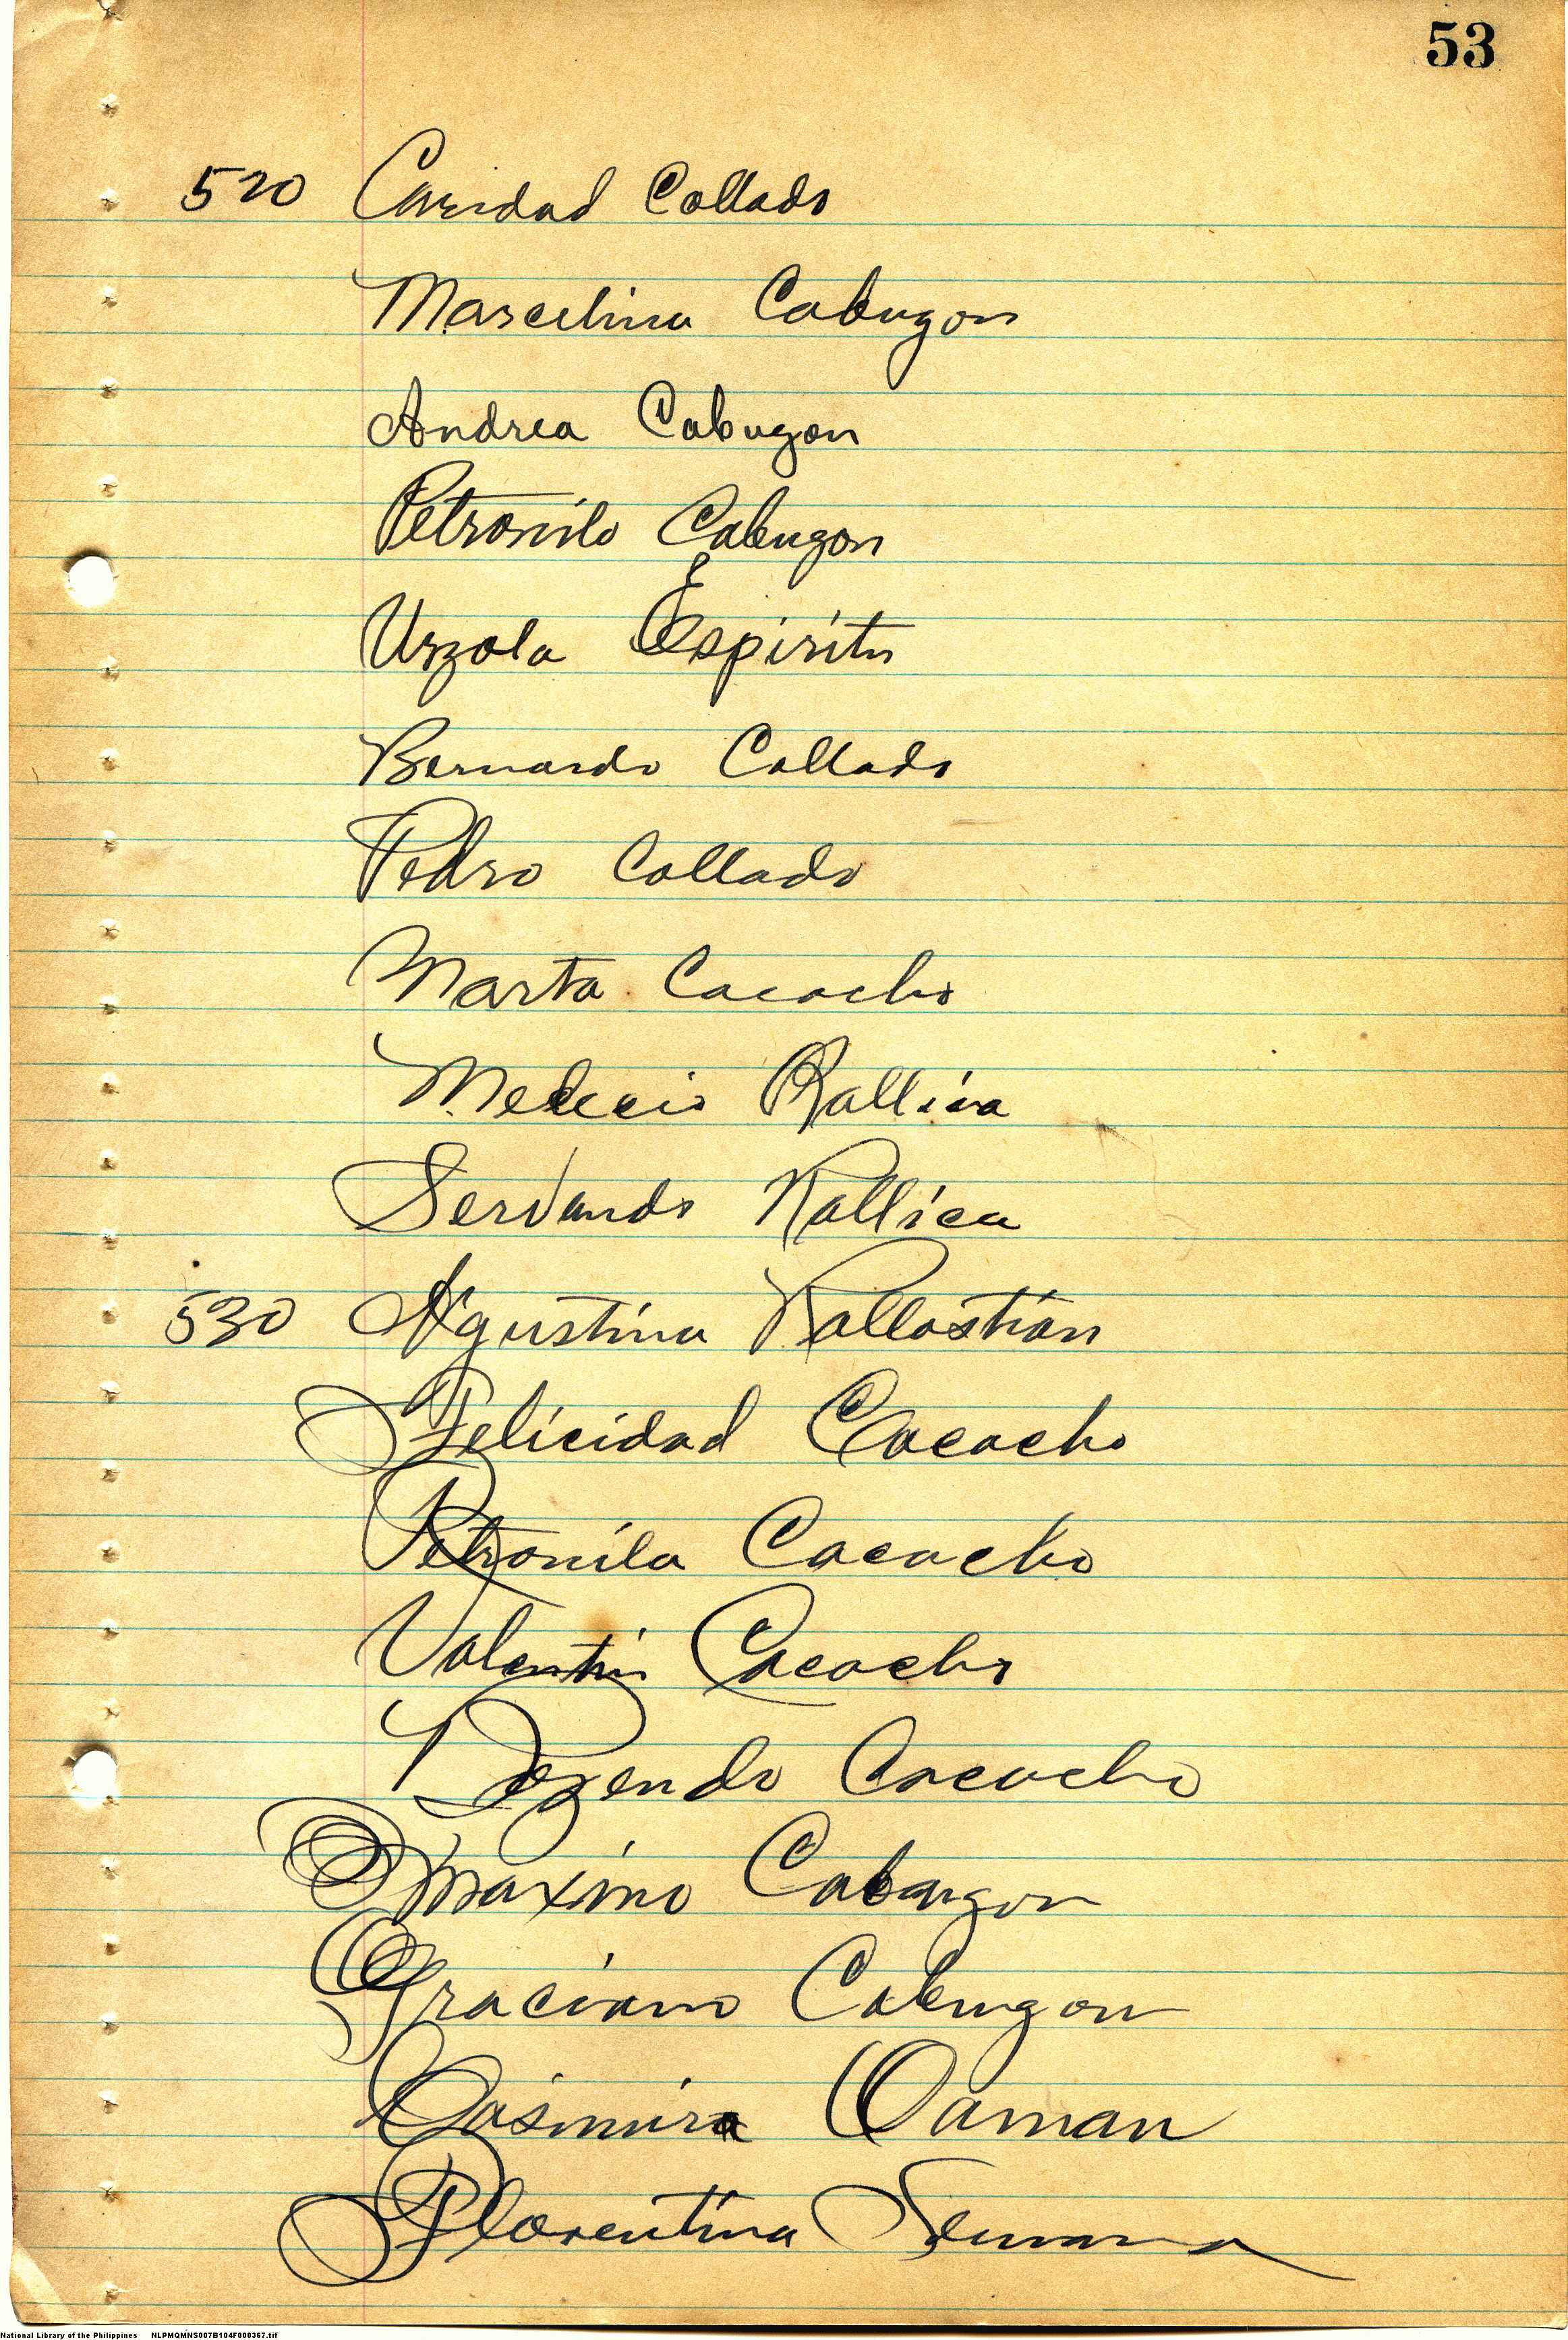 53
520 Caridad Collado
Marcelina Cabugon
Andrea Cabugon
Petronilo Cabugon
Urzola Espiritu
Bernardo Collado
Pedro Collado
Marta Cacacho
Melecio Rallica
Servando Rallica
530 Agustina Rallastian
Felicidad Cacacho
Petronila Cacacho
Valentin Cacacho
Rozendo Cacacho
Maximo Cabugon
Graciano Cabugon
Casimira Oaman
Florentina
National Library of the Philippines NLPMQMNS007B104F000367.tif